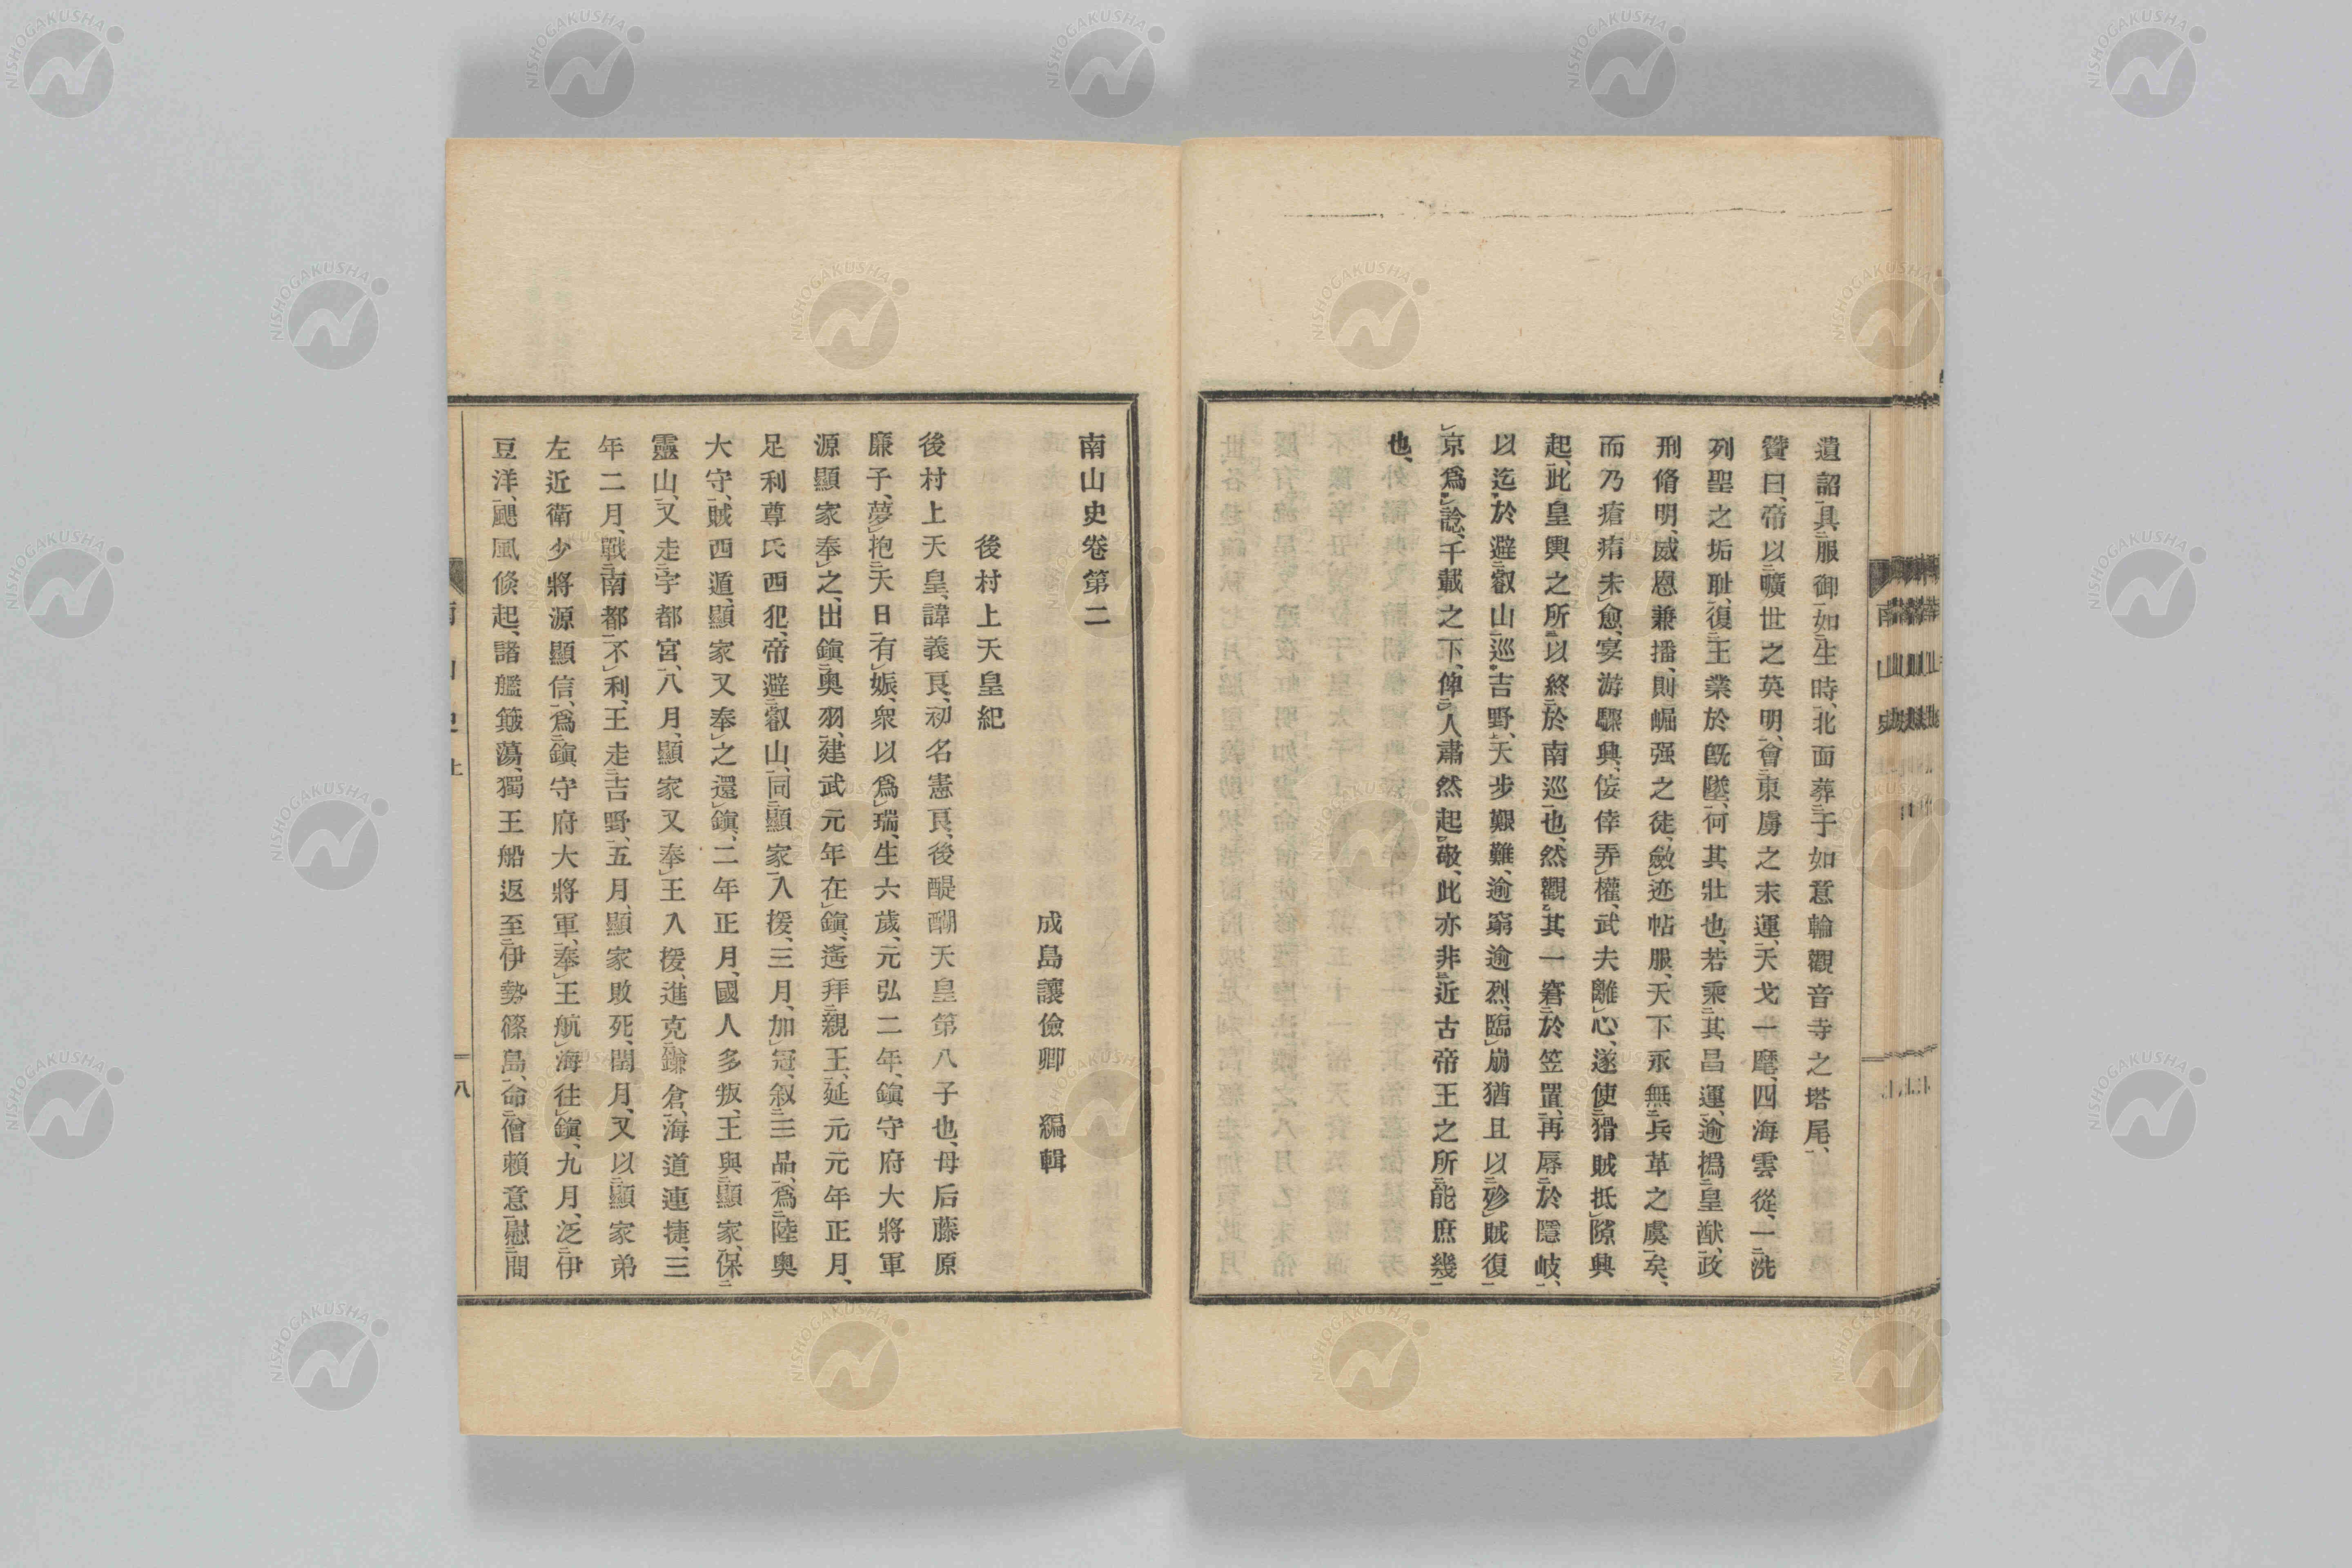 遺詔、具服御如生時、北面葬于如意輪觀音寺之塔尾、
贊曰、帝以曠世之英明、會東虜之末運、天戈一麾、四海雲從、一洗
列聖之垢耻、復王業於既墜、何其壯也、若乘其昌運、逾撝皇猷、政
刑脩明、威恩兼播、則崛强之徒、斂迹帖服、天下永無兵革之虞矣、
而乃瘡痏未愈、宴游驟興、佞倖弄權、武夫離心、遂使猾賊抵隙興
起、此皇輿之所以終於南巡也、然觀其一窘於笠置、再辱於隱岐、
以迄於避叡山巡吉野、天步艱難、逾窮逾烈、臨崩猶且以殄賊復
京爲諗、千載之下、俾人肅然起敬、此亦非近古帝王之所能庶幾
也、
南山史卷第二
成島讓儉卿 編輯
後村上天皇紀
後村上天皇、諱義良、初名憲良、後醍醐天皇第八子也、母后藤原
廉子、夢抱天日有娠、衆以爲瑞、生六歲、元弘二年、鎭守府大將軍
源顯家奉之、出鎭奥羽、建武元年在鎭、遙拜親王、延元元年正月、
足利尊氏西犯、帝避叡山、同顯家入援、三月、加冠、叙三品、爲陸奥
大守、賊西遁、顯家又奉之還鎭、二年正月、國人多叛、王與顯家、保
靈山、又走宇都宮、八月、顯家又奉王入援、進克鎌倉、海道連捷、三
年二月、戰南都不利、王走吉野、五月、顯家敗死、閏月、又以顯家弟
左近衛少將源顯信、爲鎭守府大將軍、奉王航海往鎭、九月、泛伊
豆洋、颶風倏起、諸艦簸蕩、獨王船返至伊勢篠島、命僧賴意慰問
南山史
八
NISHOGAKUSHA